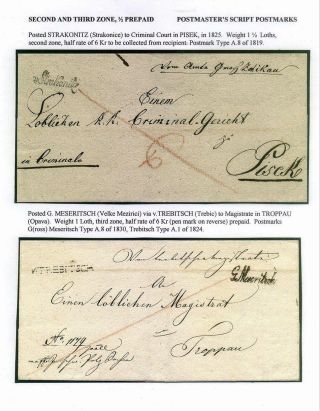 SECOND AND THIRD ZONE, ½ PREPAID POSTMASTER'S SCRIPT POSTMARKS
Posted STRAKONITZ (Strakonice) to Criminal Court in PISEK, in 1825. Weight 1 ½ Loths,
second zone, half rate of 6 Kr to be collected from recipient. Postmark Type A.8 of 1819.
Vom Amte
Einem
Löblichen k. k. Criminal-Gericht
zu
in Criminale
Piseck
6
Posted G. MESERITSCH (Velke Mezirici) via v.TREBITSCH (Trebic) to Magistrate in TROPPAU
(Opava). Weight 1 Loth, third zone, half rate of 6 Kr (pen mark on reverse) prepaid. Postmarks
G(ross) Meseritsch Type A.8 of 1830, Trebitsch Type A.1 of 1824.
v. TREBITSCH
G. Meseritsch
An
Einen löblichen Magistrat
zu
Troppau